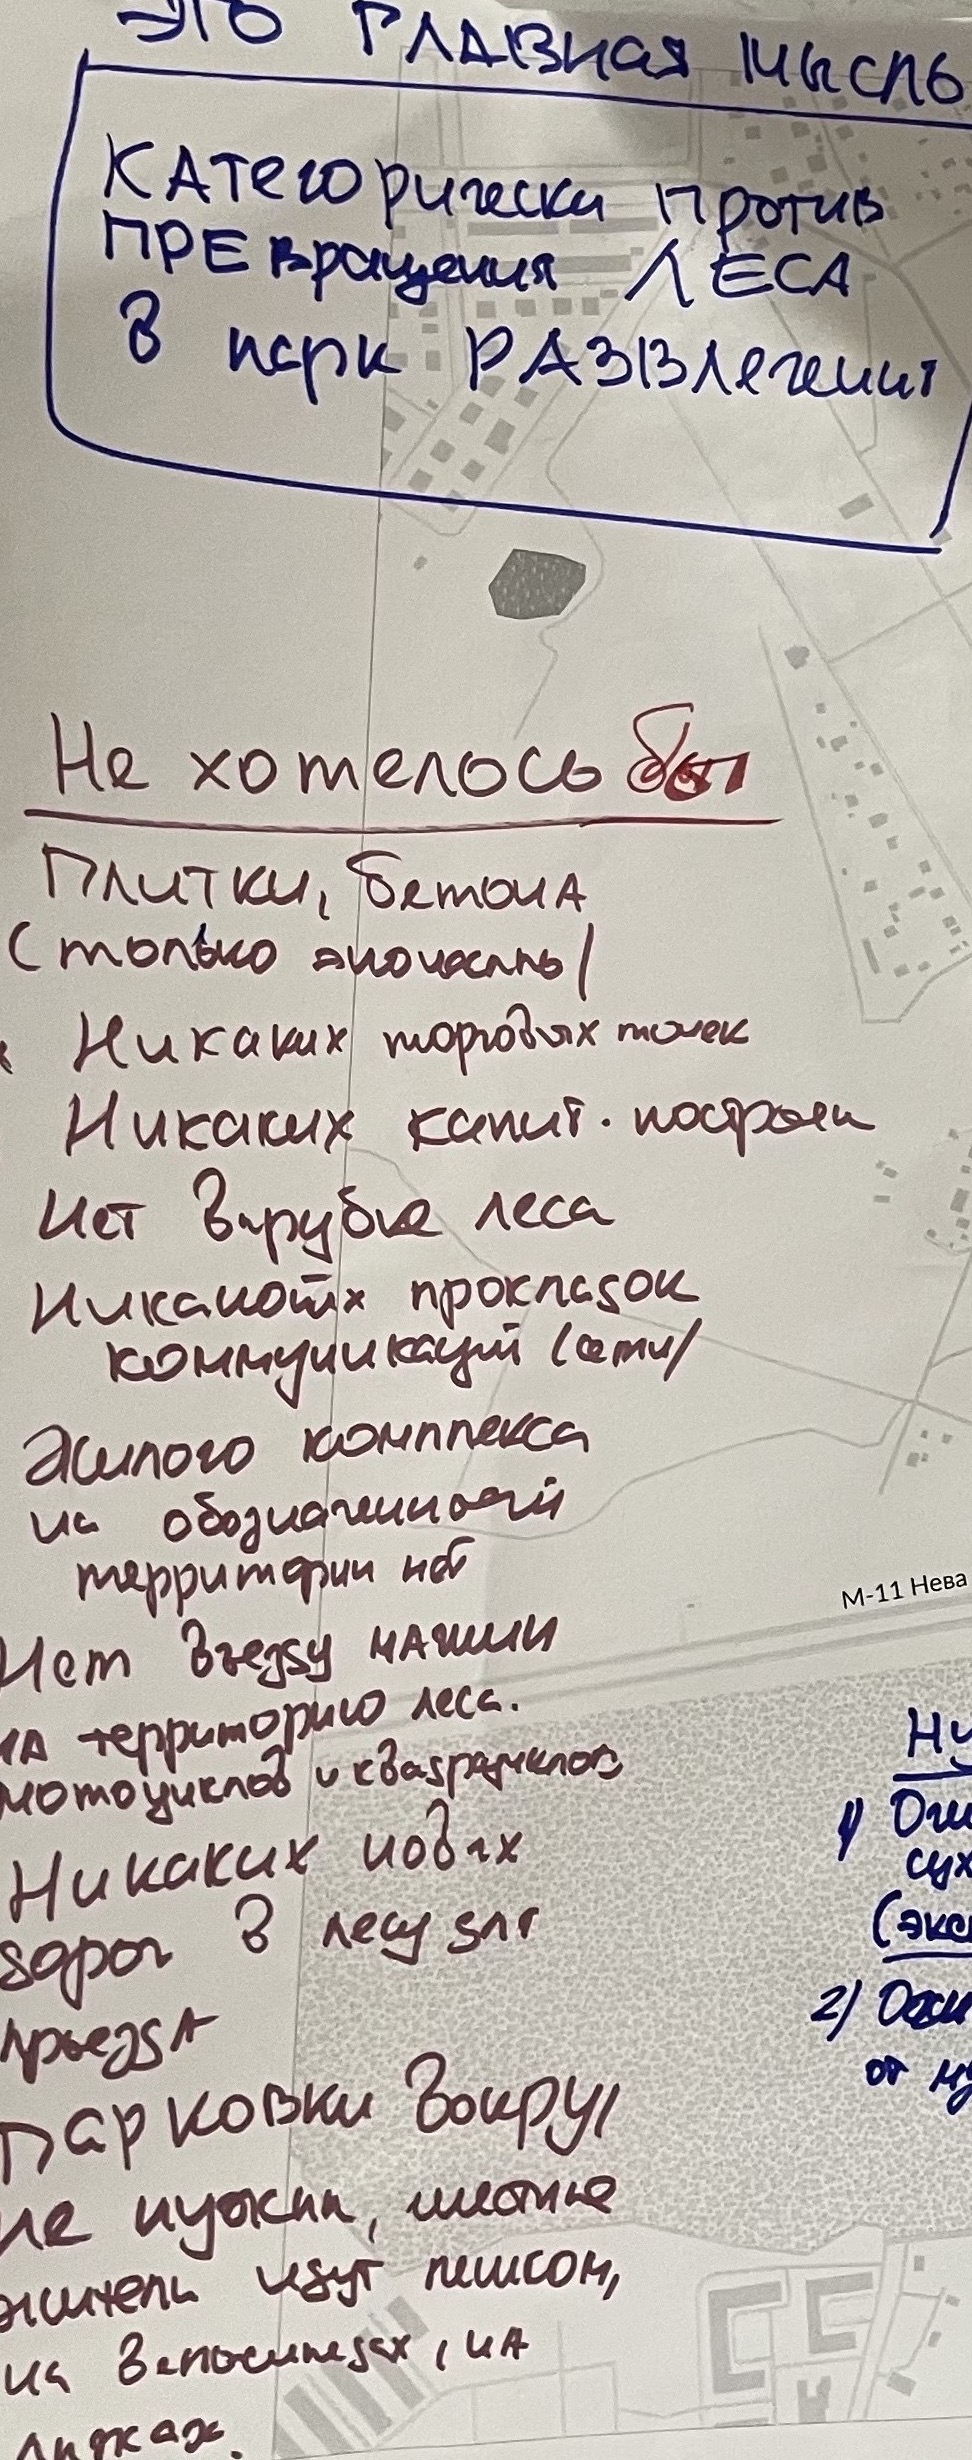 ЭТО ГЛАВНАЯ МЫСЛЬ
КАТегорически против
ПРЕвращения ЛЕСА
В парк РАЗВлечений
Не хотелось бы
Плитки, бетонА
(только экочасть)
Никаких торговых точек
Никаких капит. построек
Нет вырубке леса
Никаких прокладок
коммуникаций (сети)
Жилого комплекса
на обозначенной
территории нет
Нет въезду мАшин
нА территорию леса.
мотоциклов и квадрациклов
Никаких новых
дорог в лесу для
проездА
Парковки вокруг
не нужны, местные
жители идут пешком,
на велосипедах, нА
лыжах.
М-11 Нева
Ну
1) Огн
сух
(экс
2)
от му